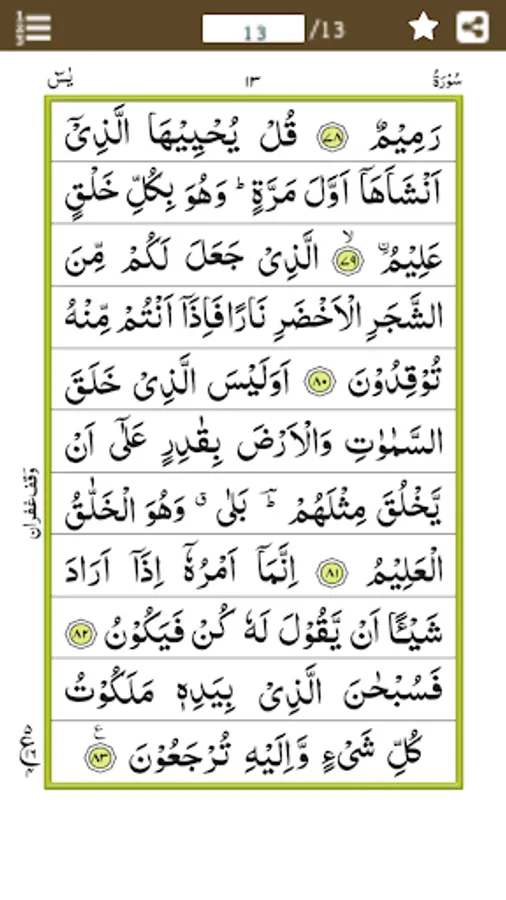 13 /13
سُوْرَةُ ١٣ يٰسٓ
رَمِيْمٌ ﴿٧٨﴾ قُلْ يُحْيِيْهَا الَّذِيْۤ
اَنْشَاَهَاۤ اَوَّلَ مَرَّةٍ ؕ وَهُوَ بِكُلِّ خَلْقٍ
عَلِيْمُ ۨ ﴿٧٩﴾ ۙ الَّذِيْ جَعَلَ لَكُمْ مِّنَ
الشَّجَرِ الْاَخْضَرِ نَارًا فَاِذَاۤ اَنْتُمْ مِّنْهُ
تُوْقِدُوْنَ ﴿٨٠﴾ اَوَلَيْسَ الَّذِيْ خَلَقَ
السَّمٰوٰتِ وَالْاَرْضَ بِقٰدِرٍ عَلٰۤى اَنْ
يَّخْلُقَ مِثْلَهُمْ ؕ بَلٰى ۗ وَهُوَ الْخَلّٰقُ
وقف غفران
الْعَلِيْمُ ﴿٨١﴾ اِنَّمَاۤ اَمْرُهٗۤ اِذَاۤ اَرَادَ
شَيْـًٔا اَنْ يَّقُوْلَ لَهٗ كُنْ فَيَكُوْنُ ﴿٨٢﴾
فَسُبْحٰنَ الَّذِيْ بِيَدِهٖ مَلَكُوْتُ
كُلِّ شَيْءٍ وَّاِلَيْهِ تُرْجَعُوْنَ ﴿٨٣﴾ ع